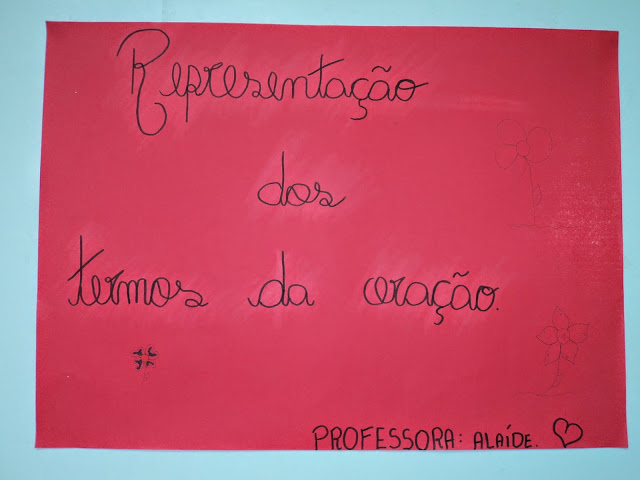 Representação
dos
termos da oração.
PROFESSORA: ALAÍDE.